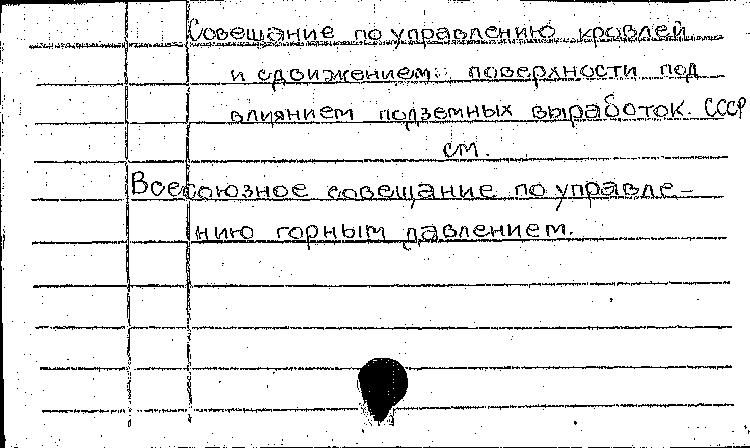 Совещание по управлению кровлей
и сдвижением поверхности под
влиянием подземных выработок. СССР
см.
Всесоюзное совещание по управле-
нию горным давлением.